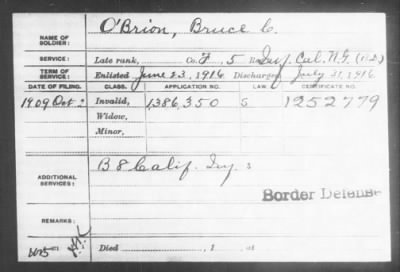 O'Brion, Bruce C.
NAME OF
SOLDIER:
SERVICE: Late rank, Co. F, 5 Inf. Cal. N.G.
TERM OF
SERVICE: Enlisted June 23, 1916, Discharged July 31, 1916
DATE OF FILING. CLASS. APPLICATION NO. LAW. CERTIFICATE NO.
Invalid, 1386,350 1252779
Widow,
Minor,
ADDITIONAL
SERVICES: B 8 Calif. Inf.
Border Defense
REMARKS:
Died , 1 , at